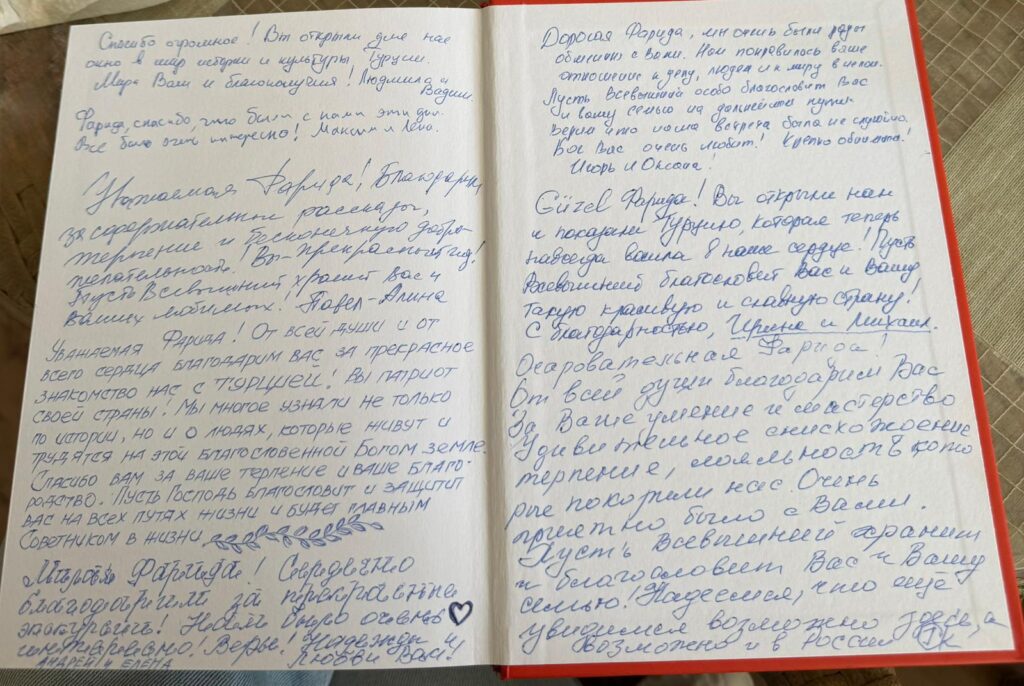 Спасибо огромное! Вы открыли для нас
окно в мир истории и культуры Турции.
Мира Вам и благополучия! Людмила и
Вадим.
Фарида, спасибо, что были с нами эти дни.
Все было очень интересно! Максим и Лена.
Уважаемая Фарида! Благодарим
за содержательные рассказы,
терпение и бесконечную добро-
желательность! Вы - прекрасный гид!
Пусть Всевышний хранит Вас и
Ваших любимых! Павел - Алина
Уважаемая Фарида! От всей души и от
всего сердца благодарим вас за прекрасное
знакомство нас с Турцией! Вы патриот
своей страны! Мы многое узнали не только
по истории, но и о людях, которые живут и
трудятся на этой благословенной Богом земле.
Спасибо вам за ваше терпение и ваше благо-
родство. Пусть Господь благословит и защитит
вас на всех путях жизни и будет главным
Советником в жизни
Фарида! Сердечно
благодарим за прекрасные
экскурсии! Нам было очень
интересно! Веры! Надежды и
Любви Вам!
Андрей и Елена
Дорогая Фарида, мы очень были рады
общению с Вами. Нам понравилось ваше
отношение к делу, людям и к миру в целом.
Пусть Всевышний особо благословит Вас
и вашу семью на дальнейшем пути.
Верим что наша встреча была не случайна.
Бог Вас очень любит! Крепко обнимаем!
Игорь и Оксана!
Güzel Фарида! Вы открыли нам
и показали Турцию, которая теперь
навсегда вошла в наше сердце! Пусть
Всевышний благословит Вас и Вашу
такую красивую и славную страну!
С благодарностью, Ирина и Михаил.
Очаровательная Фарида!
От всей души благодарим Вас
За Ваше умение и мастерство
Удивительное снисхождение
терпение, лояльность кото
рые покорили нас Очень
приятно было с Вами.
Пусть Всевышний хранит
и благословит Вас и Вашу
семью! Надеемся, что ещё
увидимся возможно здесь, а
возможно и в России